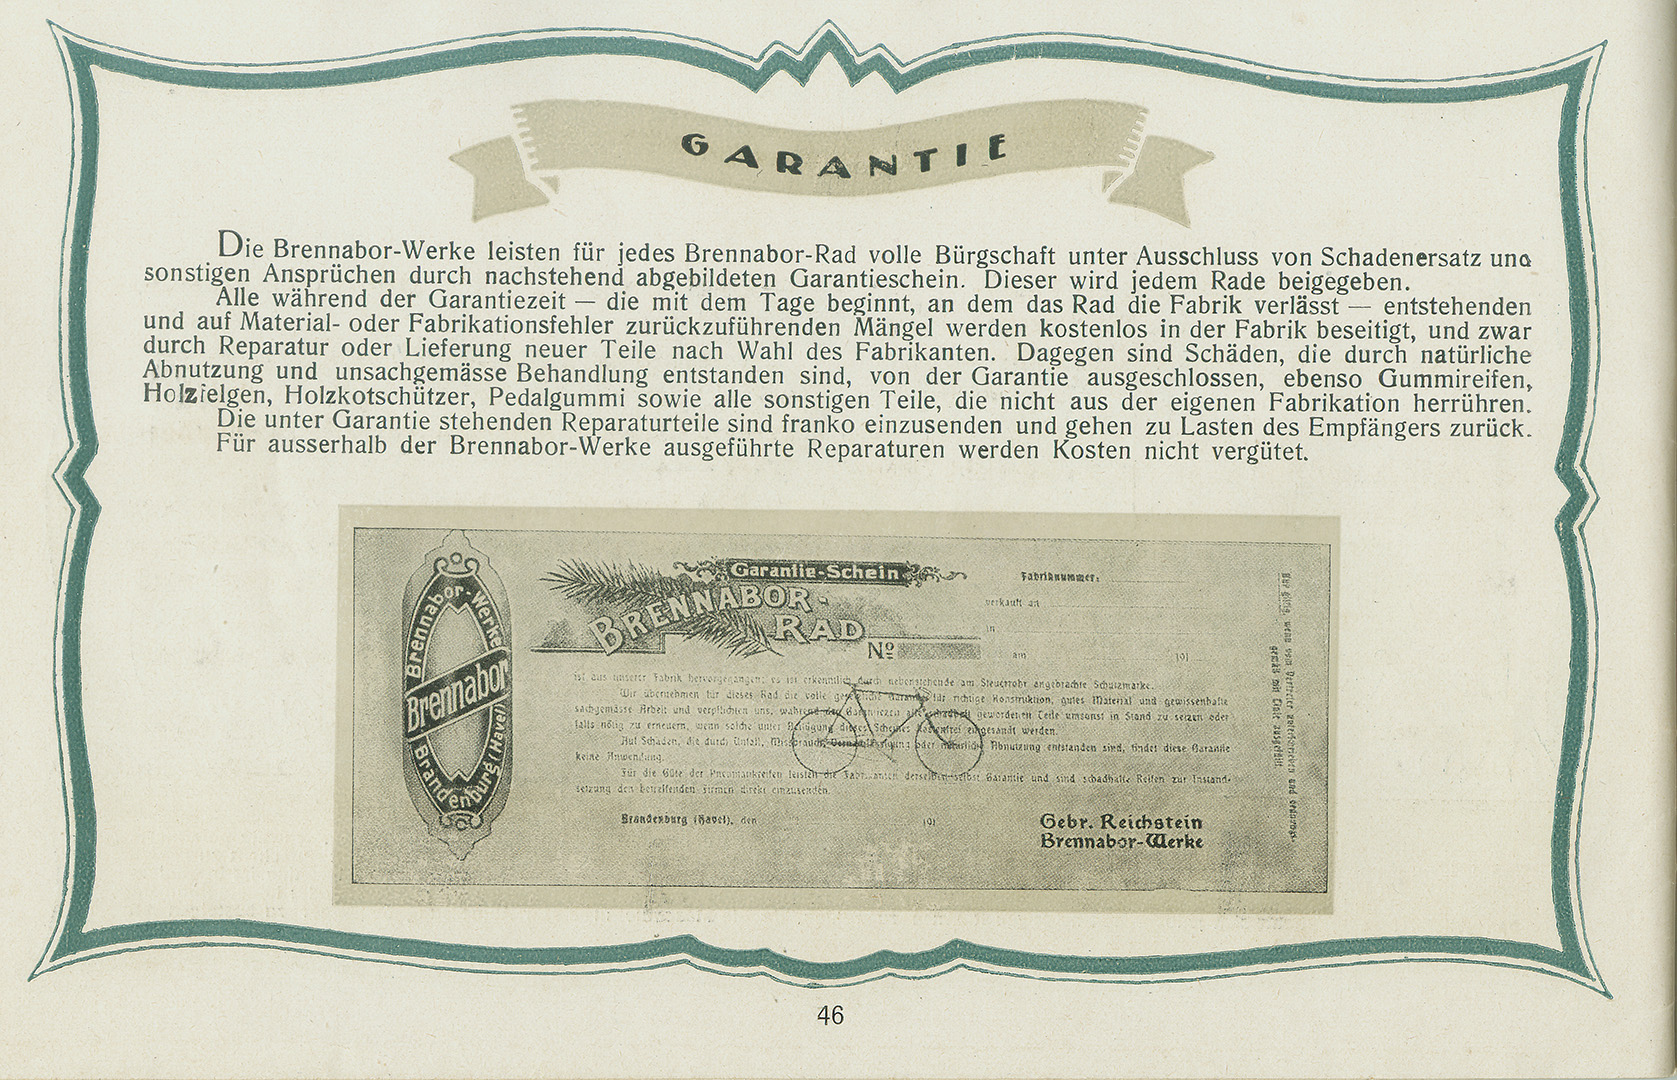 GARANTIE
Die Brennabor-Werke leisten für jedes Brennabor-Rad volle Bürgschaft unter Ausschluss von Schadenersatz und
sonstigen Ansprüchen durch nachstehend abgebildeten Garantieschein. Dieser wird jedem Rade beigegeben.
Alle während der Garantiezeit — die mit dem Tage beginnt, an dem das Rad die Fabrik verlässt — entstehenden
und auf Material- oder Fabrikationsfehler zurückzuführenden Mängel werden kostenlos in der Fabrik beseitigt, und zwar
durch Reparatur oder Lieferung neuer Teile nach Wahl des Fabrikanten. Dagegen sind Schäden, die durch natürliche
Abnutzung und unsachgemässe Behandlung entstanden sind, von der Garantie ausgeschlossen, ebenso Gummireifen,
Holzfelgen, Holzkotschützer, Pedalgummi sowie alle sonstigen Teile, die nicht aus der eigenen Fabrikation herrühren.
Die unter Garantie stehenden Reparaturteile sind franko einzusenden und gehen zu Lasten des Empfängers zurück.
Für ausserhalb der Brennabor-Werke ausgeführte Reparaturen werden Kosten nicht vergütet.
Brennabor-Werke
Brennabor
Brandenburg (Havel)
Garantie-Schein
BRENNABOR-
RAD
No
Fabriknummer:
verkauft an
in
am 191
ist aus unserer Fabrik hervorgegangen; es ist erkenntlich durch nebenstehende am Steuerrohr angebrachte Schutzmarke.
Wir übernehmen für dieses Rad die volle gesetzliche Garantie für richtige Konstruktion, gutes Material und gewissenhafte
sachgemässe Arbeit und verpflichten uns, während der Garantiezeit alle schadhaft gewordenen Teile umsonst in Stand zu setzen oder
falls nötig zu erneuern, wenn solche unter Beifügung dieses Scheines kostenfrei eingesandt werden.
Auf Schäden, die durch Unfall, Missbrauch, oder natürliche Abnutzung entstanden sind, findet diese Garantie
keine Anwendung.
Für die Güte der Pneumatikreifen leisten die Fabrikanten derselben selbst Garantie und sind schadhafte Reifen zur Instand-
setzung den betreffenden Firmen direkt einzusenden.
Brandenburg (Havel), den 191
Gebr. Reichstein
Brennabor-Werke
Nur gültig, wenn vom Vertreter unterschrieben und ordnungs-
gemäß mit Tinte ausgefüllt.
46